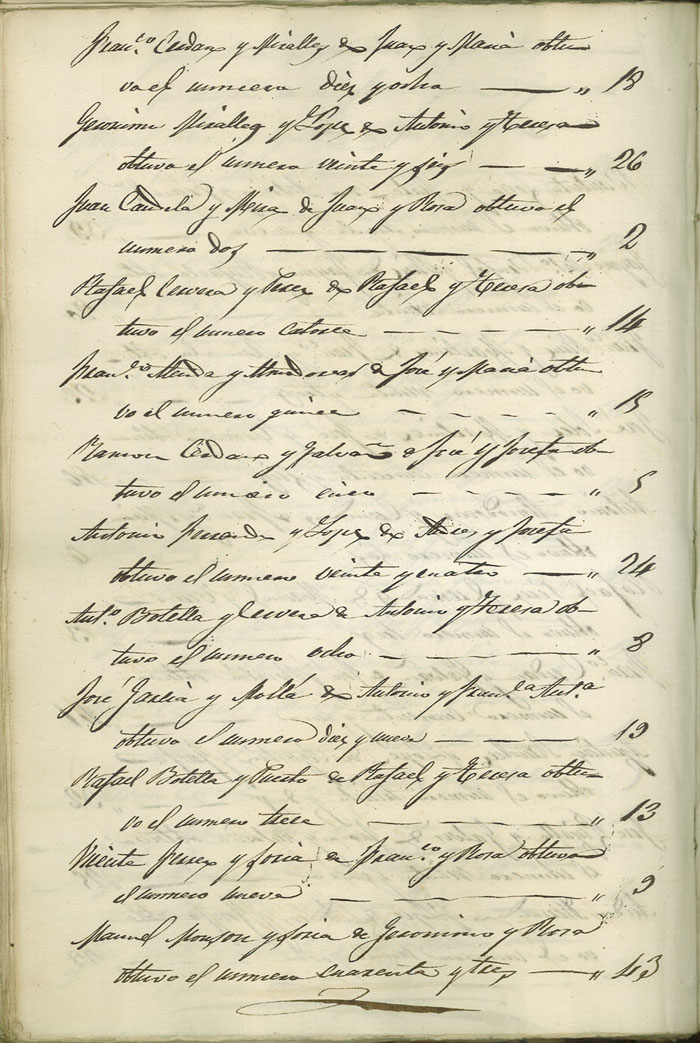 Fran.co Cerdan y Miralles de Juan y Maria obtu-
vo el numero diez y ocho — „ 18
Geronimo Miralles y Lopez de Antonio y Teresa
obtuvo el numero veinte y seis — — „ 26
Juan Candela y Mira de Juan y Rosa obtuvo el
numero dos — — — „ 2
Rafael Cervera y Perez de Rafael y Teresa ob-
tuvo el numero catorce — — — „ 14
Fran.co y de José y Maria obtu-
vo el numero quince — — — „ 15
Ramon Cerdan y Galvañ de José y Josefa ob-
tuvo el numero cinco — — — „ 5
Antonio Ferrandez y Lopez de y Josefa
obtuvo el numero veinte y cuatro — „ 24
Ant.o Botella y Cervera de Antonio y Teresa ob-
tuvo el numero ocho — — — „ 8
José Garcia y Mollá de Antonio y Fran.ca Ant.a
obtuvo el numero diez y nueve — — — 19
Rafael Botella y Puerto de Rafael y Teresa obtu-
vo el numero trece — — — „ 13
Vicente Perez y Soria de Fran.co y Rosa obtuvo
el numero nueve — — — „ 9
Manuel Monzon y Soria de Geronimo y Rosa
obtuvo el numero cuarenta y tres — „ 43